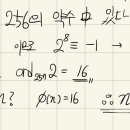 256의 약수 中 있
이므로 2⁸ ≡ -1 →
ord₂₅₇ 2 = 16
n? φ(n)=16 ∴ n